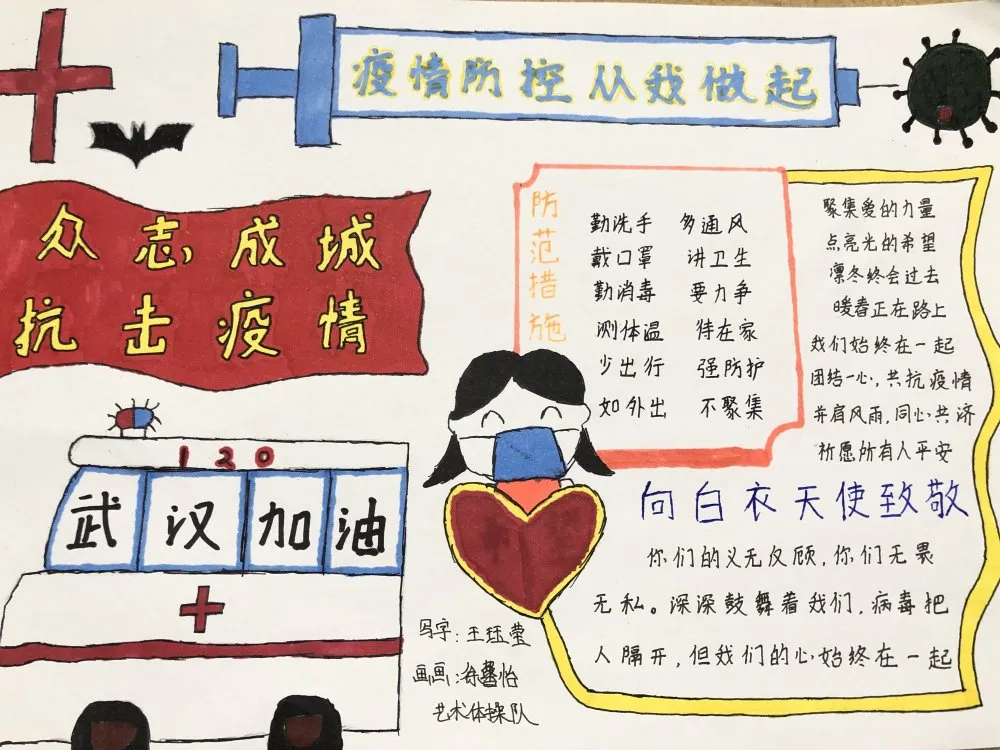 疫情防控从我做起
众志成城
抗击疫情
防范措施
勤洗手 多通风
戴口罩 讲卫生
勤消毒 要力争
测体温 待在家
少出行 强防护
如外出 不聚集
聚集爱的力量
点亮光的希望
凛冬终会过去
暖春正在路上
我们始终在一起
团结一心,共抗疫情
并肩风雨,同心共济
祈愿所有人平安
向白衣天使致敬
你们的义无反顾,你们无畏
无私。深深鼓舞着我们,病毒把
人隔开,但我们的心始终在一起
120
武汉加油
写字:王珏莹
画画:徐馨怡
艺术体操队